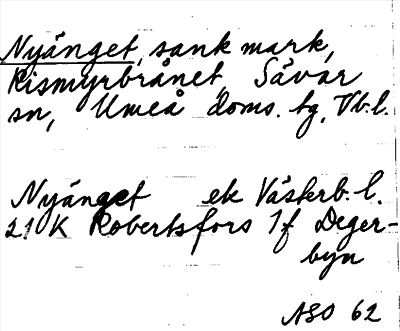 Nyänget, sank mark,
Rismyrbrånet, Sävar
sn, Umeå doms. tg, Vb.l.
Nyänget ek Västerb.l.
21 K Robertsfors 1f Deger-
byn
ASO 62